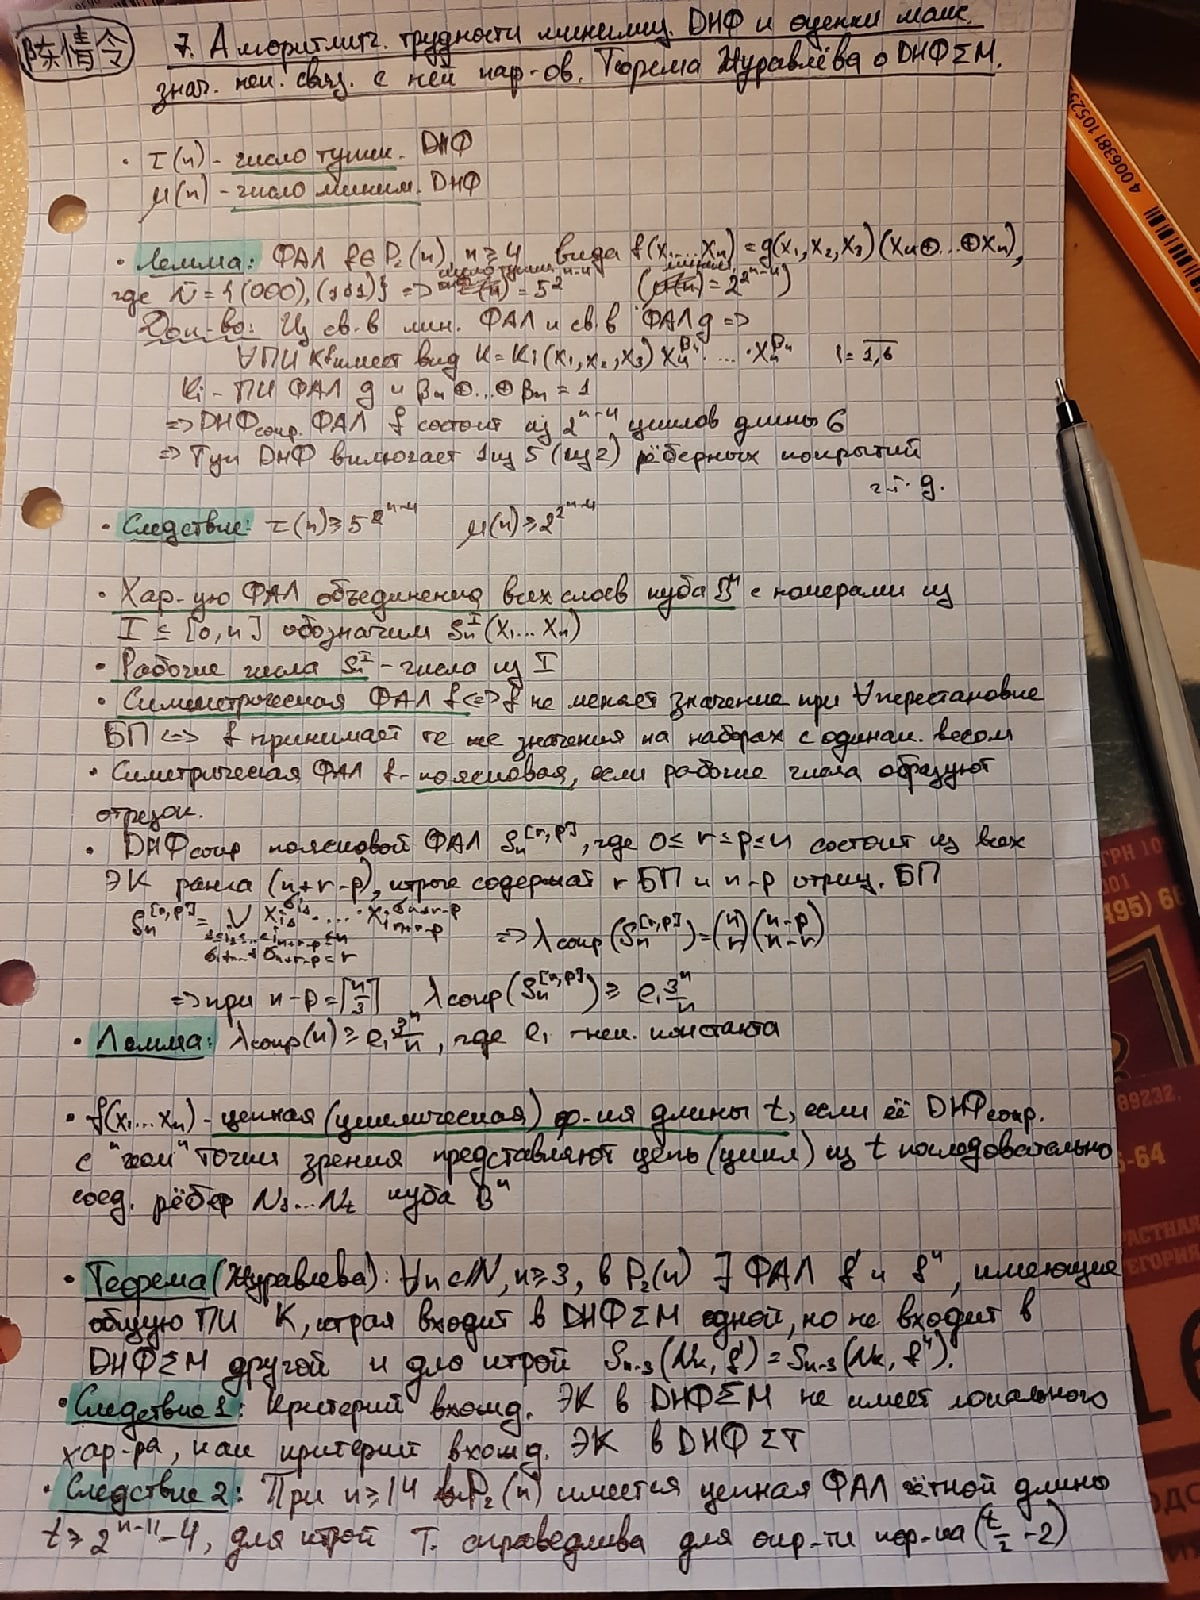 陈情令
7. Алгоритмич. трудности минимиз. ДНФ и оценки макс.
знач. нек. связ. с ней пар-ов. Теорема Журавлёва о ДНФΣМ.
• τ(n) - число тупик. ДНФ
μ(n) - число миним. ДНФ
• Лемма: ФАЛ f∈P₂(n), n≥4 вида f(x₁...xₙ)=g(x₁,x₂,x₃)(x₄⊕...⊕xₙ),
где N̄={(000),(111)} => число тупик = 5^2^(n-4) (миним = 2^2^(n-4))
Док-во: Из св.в лин. ФАЛ и св.в ФАЛ g =>
∀ПИ K имеет вид K=Kᵢ(x₁,x₂,x₃) x₄^β₄·...·xₙ^βₙ i=1,6
Kᵢ - ПИ ФАЛ g и β₄⊕...⊕βₙ=1
=> ДНФсокр. ФАЛ f состоит из 2^(n-4) циклов длины 6
=> Туп ДНФ включает 1 из 5 (из 2) рёберных покрытий
г.т. g.
• Следствие: τ(n)≥5^2^(n-4) μ(n)≥2^2^(n-4)
• Хар-ую ФАЛ объединения всех слоев куба Bⁿ с номерами из
I ⊆ [0,n] обозначим Sₙ^I(x₁...xₙ)
• Рабочие числа Sₙ^I - числа из I
• Симметрическая ФАЛ f <=> f не меняет значение при ∀перестановке
БП <=> f принимает те же значения на наборах с одинак. весом
• Симетрическая ФАЛ f - поясковая, если рабочие числа образуют
отрезок.
• ДНФсокр поясковой ФАЛ Sₙ^[r,p], где 0≤r≤p≤n состоит из всех
ЭК ранга (n+r-p), ктрые содержат r БП и n-p отриц. БП
Sₙ^[r,p] = ∨ x_i₁^σ₁·...·x_iₙ₊ᵣ₋ₚ^σₙ₊ᵣ₋ₚ => λсокр(Sₙ^[r,p])=(n r)(n-r n-p)
1≤i₁<...<iₙ₊ᵣ₋ₚ≤n
σ₁+...+σₙ₊ᵣ₋ₚ=r
=> при n-p=⌈n/3⌉ λсокр(Sₙ^[r,p]) ≥ e₁ 3ⁿ/n
• Лемма: λсокр(n) ≥ e₁ 3ⁿ/n, где e₁ - нек. константа
• f(x₁...xₙ) - цепная (циклическая) ф-ия длины t, если её ДНФсокр.
с "геом" точки зрения представляют цепь (цикл) из t последовательно
соед. рёбер N₁...Nₜ куба Bⁿ
• Теорема (Журавлева): ∀n∈N, n≥3, в P₂(n) ∃ ФАЛ f' и f'', имеющие
общую ПИ K, ктрая входит в ДНФΣМ одной, но не входит в
ДНФΣМ другой и для ктрой Sₙ₋₃(Nₖ, f')=Sₙ₋₃(Nₖ, f'').
• Следствие 1: Критерий вхожд. ЭК в ДНФΣМ не имеет локального
хар-ра, как критерий вхожд. ЭК в ДНФΣТ
• Следствие 2: При n≥14 в P₂(n) имеется цепная ФАЛ чётной длины
t≥2^(n-11)-4, для ктрой Т. справедлива для окр-ти пор-ка (t/2 -2)
4 006381 10525